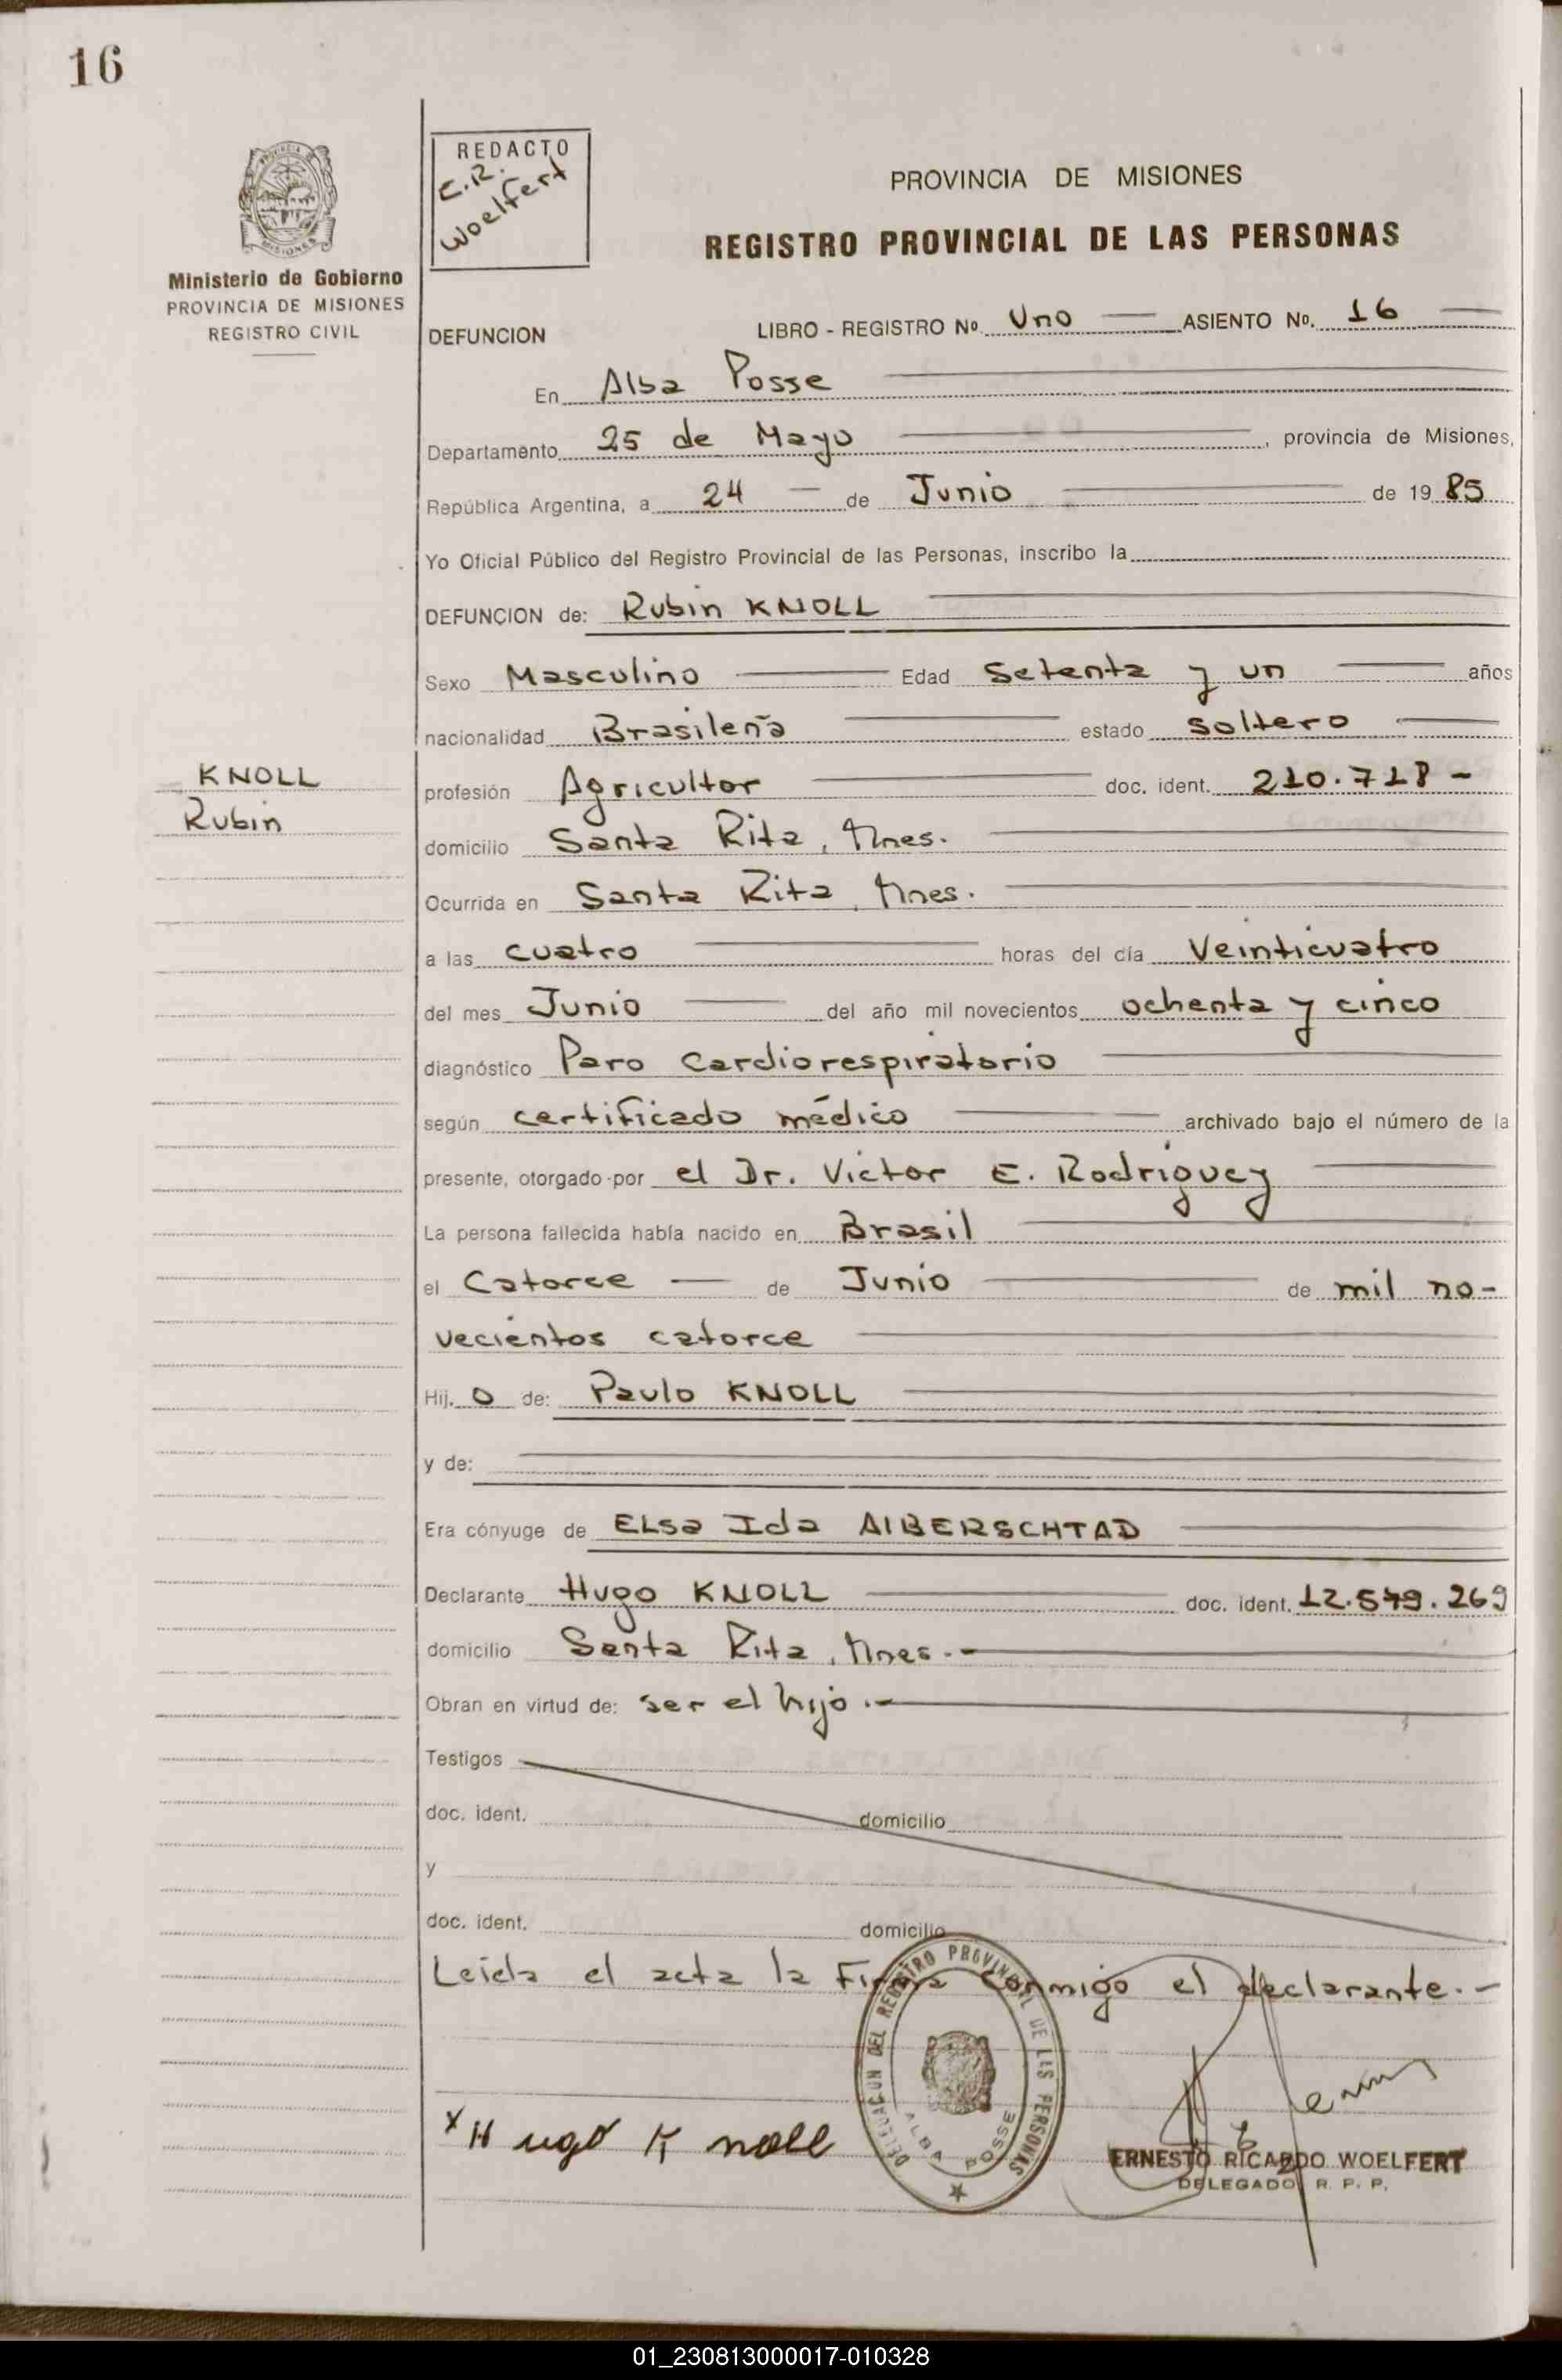 16
PROVINCIA DE
MISIONES
Ministerio de Gobierno
PROVINCIA DE MISIONES
REGISTRO CIVIL
REDACTO
E.R.
Woelfert
PROVINCIA DE MISIONES
REGISTRO PROVINCIAL DE LAS PERSONAS
DEFUNCION LIBRO - REGISTRO Nº Uno ASIENTO Nº. 16
En Alba Posse
Departamento 25 de Mayo, provincia de Misiones,
República Argentina, a 24 de Junio de 1985
Yo Oficial Público del Registro Provincial de las Personas, inscribo la
DEFUNCION de: Rubin KNOLL
Sexo Masculino Edad Setenta y un años
nacionalidad Brasileña estado soltero
KNOLL
Rubin
profesión Agricultor doc. ident. 210.718 -
domicilio Santa Rita, Mnes.
Ocurrida en Santa Rita, Mnes.
a las cuatro horas del día Veinticuatro
del mes Junio del año mil novecientos ochenta y cinco
diagnóstico Paro Cardiorespiratorio
según certificado médico archivado bajo el número de la
presente, otorgado por el Dr. Victor E. Rodriguez
La persona fallecida había nacido en Brasil
el Catorce de Junio de mil no-
vecientos catorce
Hij. o de: Paulo KNOLL
y de:
Era cónyuge de ELsa Ida AlBERSCHTAD
Declarante Hugo KNOLL doc. ident. 12.549.269
domicilio Santa Rita, Mnes.-
Obran en virtud de: ser el hijo.-
Testigos
doc. ident. domicilio
y
doc. ident. domicilio
Leída el acta la Firma conmigo el declarante.-
DELEGACION DEL REGISTRO PROVINCIAL DE LAS PERSONAS
ALBA POSSE
x Hugo Knoll
ERNESTO RICARDO WOELFERT
DELEGADO R. P. P.
01_230813000017-010328